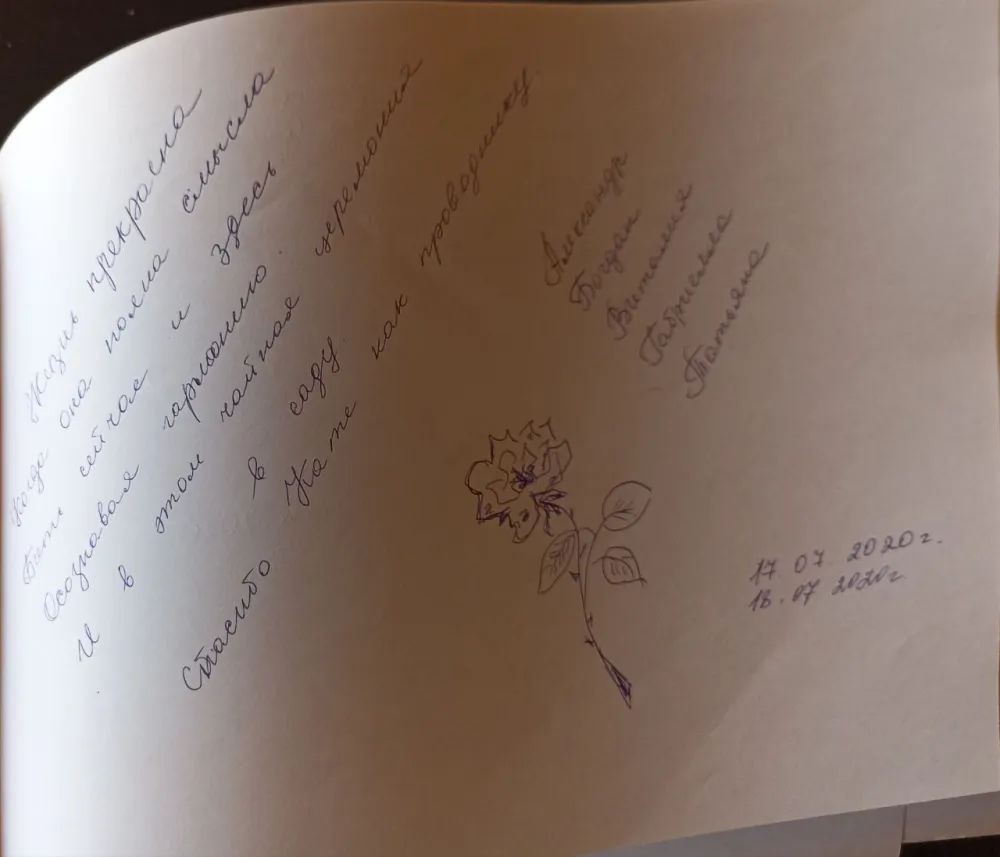 Жизнь прекрасна
Когда она полна смысла
Быть сейчас и здесь
Осознавая гармонию.
И в этом чайная церемония
в саду.
Спасибо Кате как проводнику.
Александр
Богдан
Виталия
Габриелла
Татьяна
17.07 2020г.
18.07 2020г.